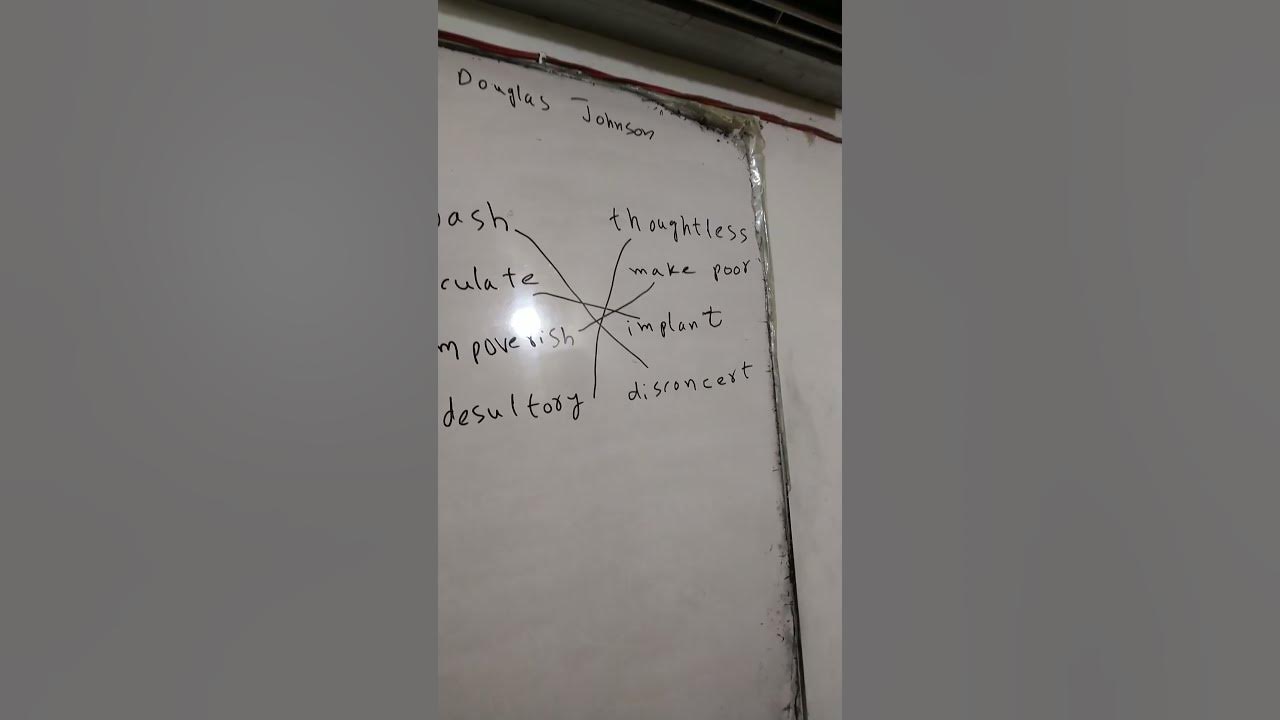 Douglas Johnson
ash thoughtless
culate make poor
mpoverish implant
desultory disconcert